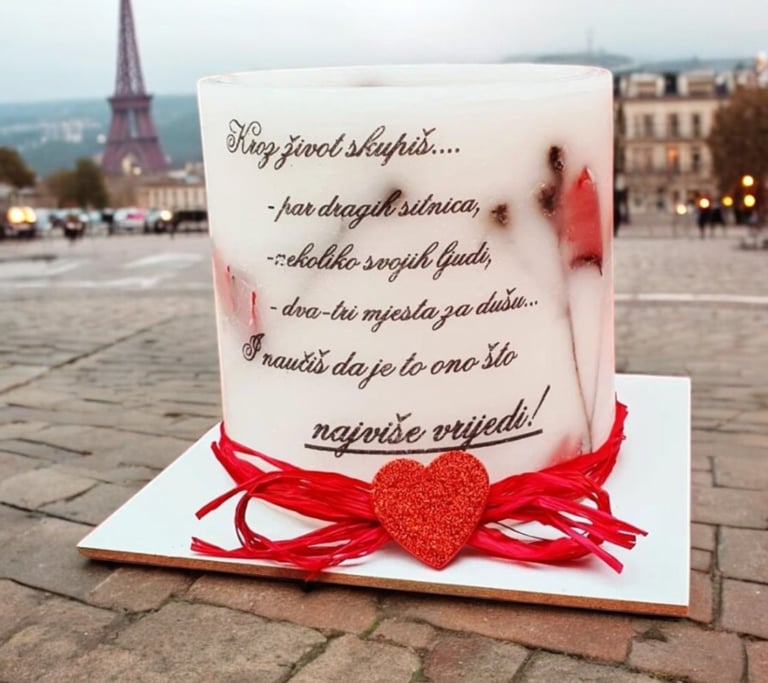 Kroz život skupiš....
-par dragih sitnica,
-nekoliko svojih ljudi,
- dva-tri mjesta za dušu...
I naučiš da je to ono što
najviše vrijedi!